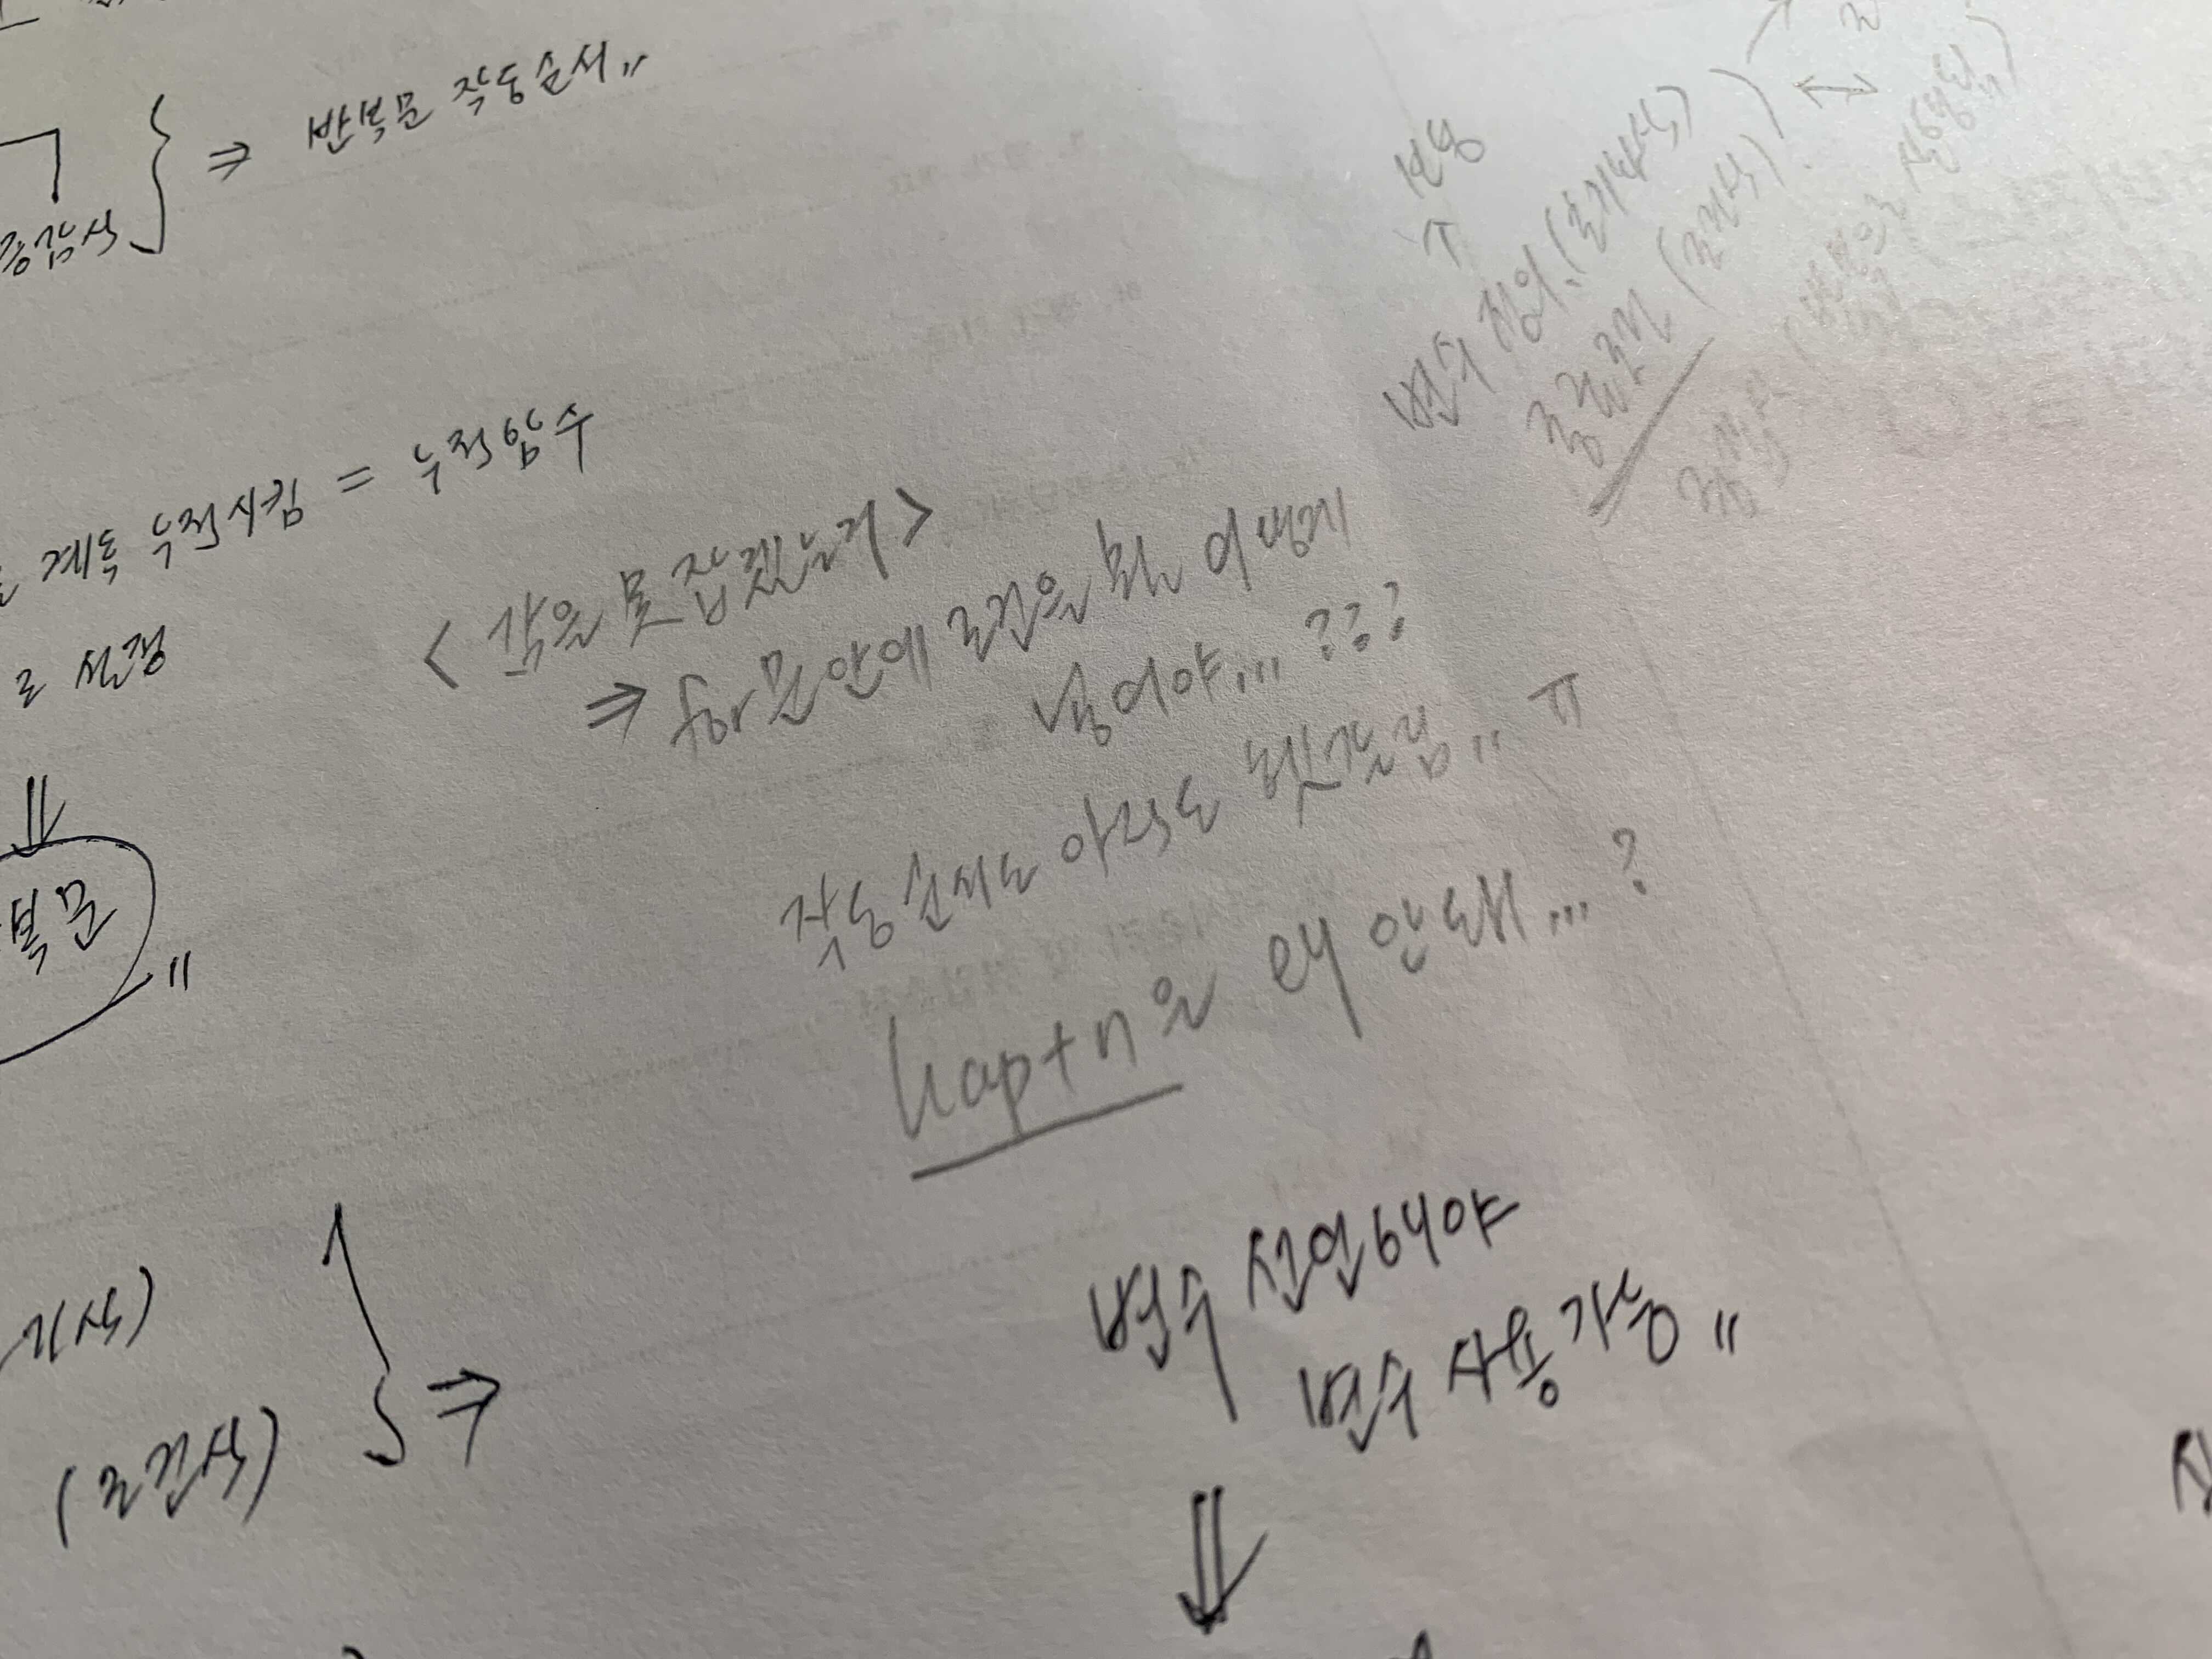 ⇒ 반복문 작동순서"
증감식
계속 누적시킴 = 누적함수
로 설정
<감을 못 잡겠는거>
⇒ for문 안에 조건을 뭔 어떻게
넣어야,,, ???
작동순서도 아직도 헷갈림,, ㅠ
hap+n은 왜 안돼,,, ?
복문"
변수 선언해야
변수 사용가능"
기식)
(조건식)
⇒
변수 정의 (초기화식)
종료조건 (조건식)
증감식